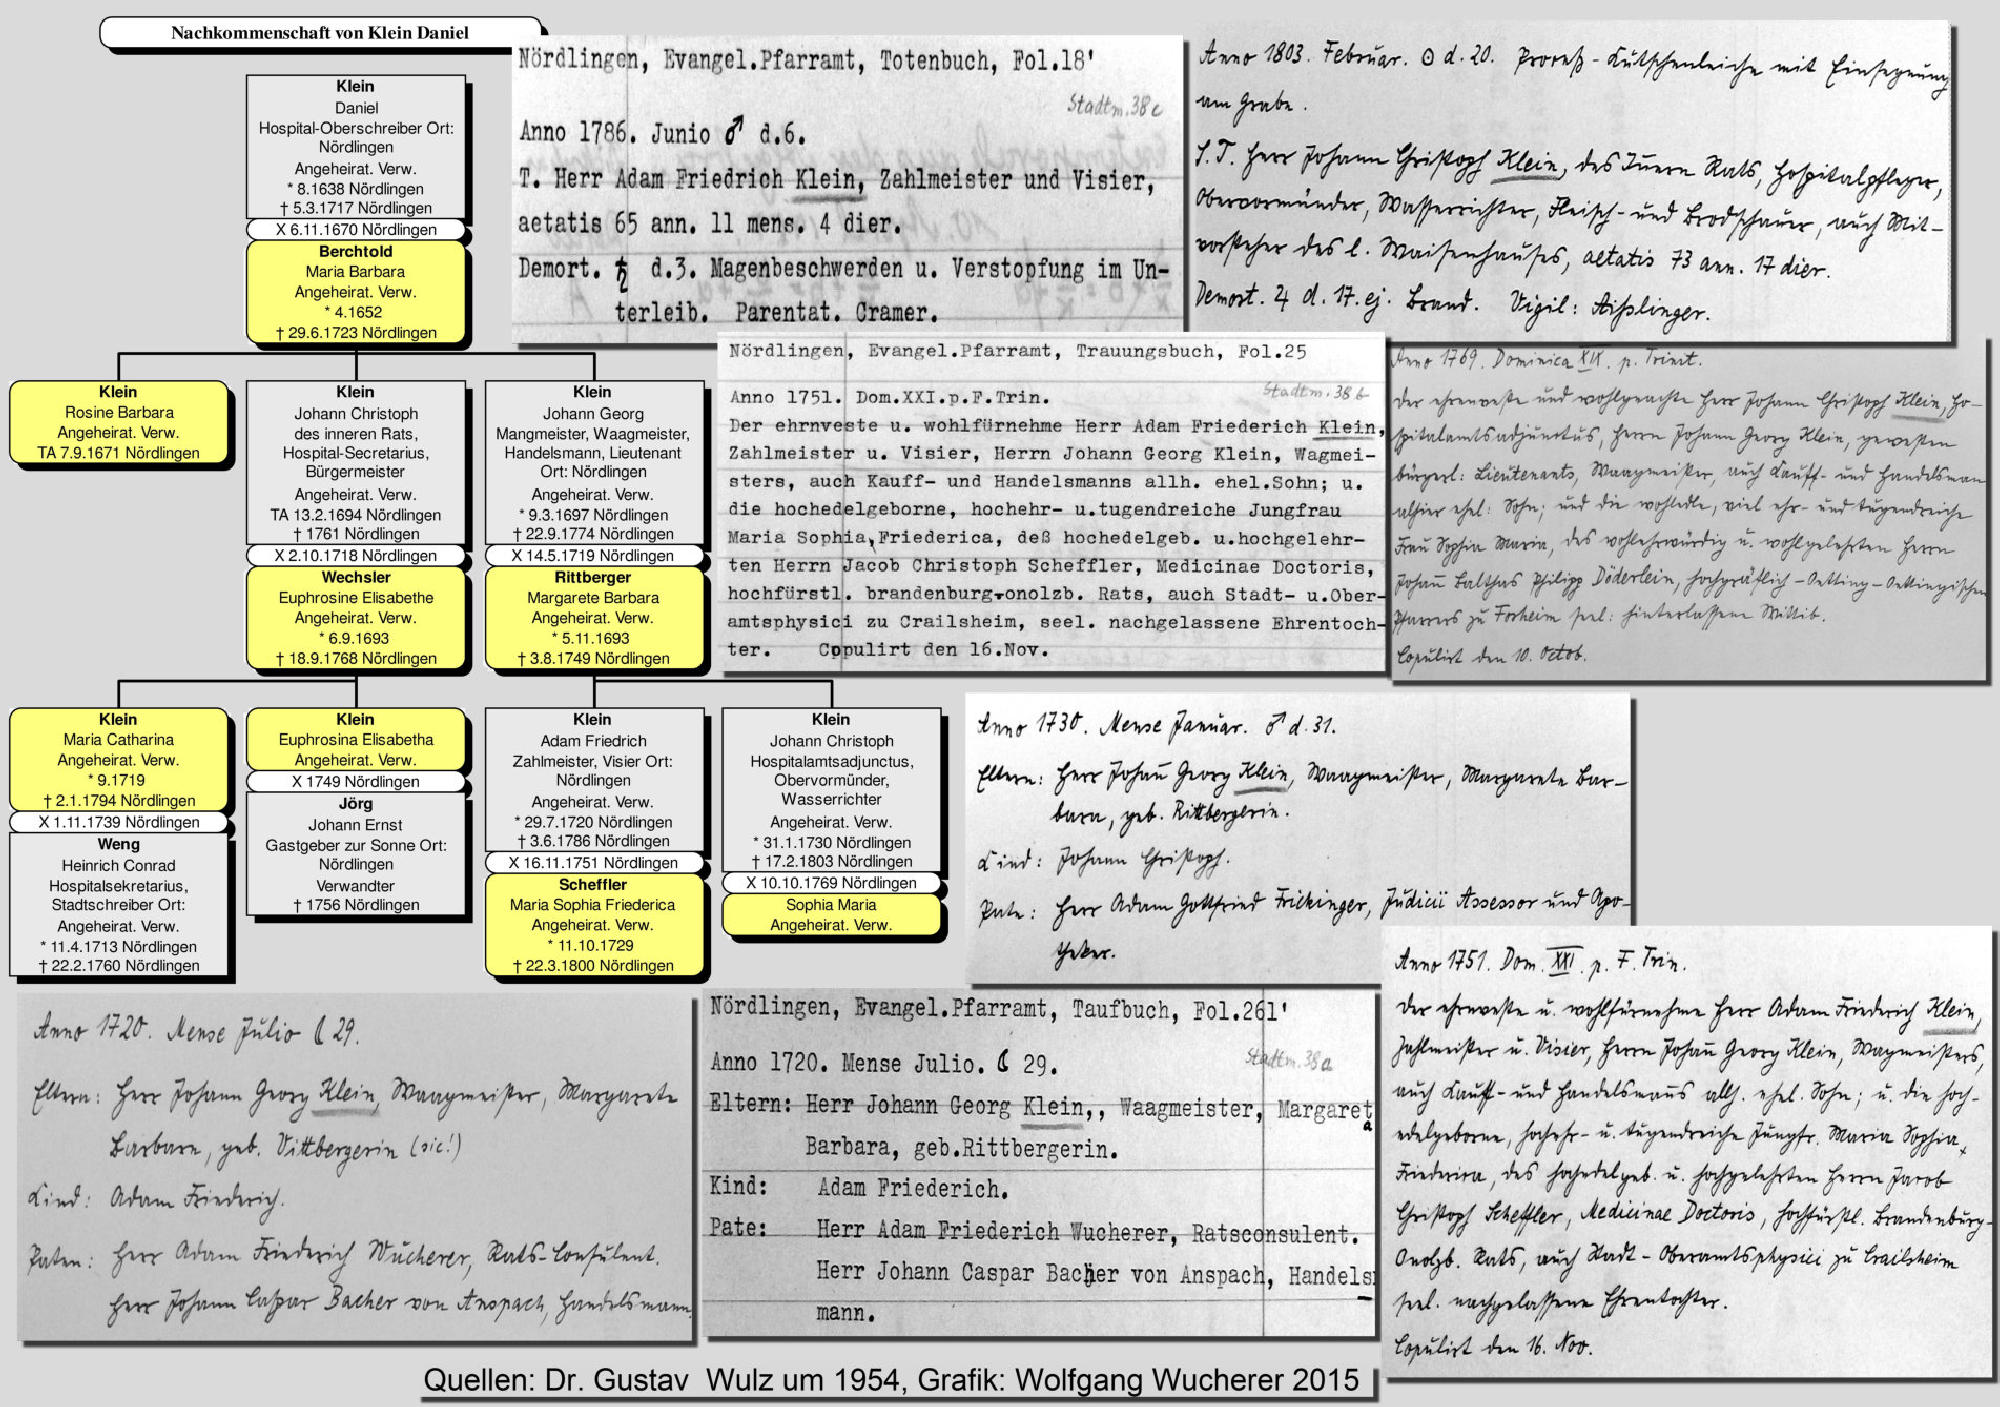 Nachkommenschaft von Klein Daniel
Klein
Daniel
Hospital-Oberschreiber Ort:
Nördlingen
Angeheirat. Verw.
* 8.1638 Nördlingen
† 5.3.1717 Nördlingen
X 6.11.1670 Nördlingen
Berchtold
Maria Barbara
Angeheirat. Verw.
* 4.1652
† 29.6.1723 Nördlingen
Klein
Rosine Barbara
Angeheirat. Verw.
TA 7.9.1671 Nördlingen
Klein
Johann Christoph
des inneren Rats,
Hospital-Secretarius,
Bürgermeister
Angeheirat. Verw.
TA 13.2.1694 Nördlingen
† 1761 Nördlingen
X 2.10.1718 Nördlingen
Wechsler
Euphrosine Elisabethe
Angeheirat. Verw.
* 6.9.1693
† 18.9.1768 Nördlingen
Klein
Johann Georg
Mangmeister, Waagmeister,
Handelsmann, Lieutenant
Ort: Nördlingen
Angeheirat. Verw.
* 9.3.1697 Nördlingen
† 22.9.1774 Nördlingen
X 14.5.1719 Nördlingen
Rittberger
Margarete Barbara
Angeheirat. Verw.
* 5.11.1693
† 3.8.1749 Nördlingen
Klein
Maria Catharina
Angeheirat. Verw.
* 9.1719
† 2.1.1794 Nördlingen
X 1.11.1739 Nördlingen
Weng
Heinrich Conrad
Hospitalsekretarius,
Stadtschreiber Ort:
Angeheirat. Verw.
* 11.4.1713 Nördlingen
† 22.2.1760 Nördlingen
Klein
Euphrosina Elisabetha
Angeheirat. Verw.
X 1749 Nördlingen
Jörg
Johann Ernst
Gastgeber zur Sonne Ort:
Nördlingen
Verwandter
† 1756 Nördlingen
Klein
Adam Friedrich
Zahlmeister, Visier Ort:
Nördlingen
Angeheirat. Verw.
* 29.7.1720 Nördlingen
† 3.6.1786 Nördlingen
X 16.11.1751 Nördlingen
Scheffler
Maria Sophia Friederica
Angeheirat. Verw.
* 11.10.1729
† 22.3.1800 Nördlingen
Klein
Johann Christoph
Hospitalamtsadjunctus,
Obervormünder,
Wasserrichter
Angeheirat. Verw.
* 31.1.1730 Nördlingen
† 17.2.1803 Nördlingen
X 10.10.1769 Nördlingen
Sophia Maria
Angeheirat. Verw.
Nördlingen, Evangel.Pfarramt, Totenbuch, Fol.18'
Stadtm. 38 c
Anno 1786. Junio ♂ d.6.
T. Herr Adam Friedrich Klein, Zahlmeister und Visier,
aetatis 65 ann. 11 mens. 4 dier.
Demort. ♄ d.3. Magenbeschwerden u. Verstopfung im Un-
terleib. Parentat. Cramer.
Anno 1803. Februar. ☉ d. 20. Proceß-Kutschenleiche mit Einsegnung
am Grabe.
S. T. Herr Johann Christoph Klein, des Innern Rats, Hospitalpfleger,
Obervormünder, Wasserrichter, Fleisch- und Brodschauer, auch Mit-
vorsteher des l. Waisenhauses, aetatis 73 ann. 17 dier.
Demort. ♃ d. 17. ej. Brand. Vigil: Aißlinger.
Nördlingen, Evangel.Pfarramt, Trauungsbuch, Fol.25
Stadtm. 38 b
Anno 1751. Dom.XXI.p.F.Trin.
Der ehrnveste u. wohlfürnehme Herr Adam Friederich Klein,
Zahlmeister u. Visier, Herrn Johann Georg Klein, Wagmei-
sters, auch Kauff- und Handelsmanns allh. ehel.Sohn; u.
die hochedelgeborne, hochehr- u.tugendreiche Jungfrau
Maria Sophia,Friederica, deß hochedelgeb. u.hochgelehr-
ten Herrn Jacob Christoph Scheffler, Medicinae Doctoris,
hochfürstl. brandenburg-onolzb. Rats, auch Stadt- u.Ober-
amtsphysici zu Crailsheim, seel. nachgelassene Ehrentoch-
ter. Copulirt den 16.Nov.
Anno 1769. Dominica XIX. p. Trinit.
Der ehrenveste und wohlgeachte Herr Johann Christoph Klein, Ho-
spitalamtsadjunctus, Herrn Johann Georg Klein, gewesten
bürgerl: Lieutenants, Waagmeister, auch Kauff- und Handelsman
alhier ehel: Sohn; und die wohledle, viel ehr- und tugendreiche
Frau Sophia Maria, des wohlehrwürdig u. wohlgelehrten Herrn
Johañ Balthas Philipp Döderlein, hochgräflich-Oetting-Oettingischen
Pfarrers zu Forheim seel: hinterlassene Wittib.
Copulirt den 10. Octob.
Anno 1730. Mense Januar. ♂ d. 31.
Eltern: Herr Johañ Georg Klein, Waagmeister, Margarete Bar-
bara, geb. Rittbergerin.
Kind: Johann Christoph.
Pate: Herr Adam Gottfried Frickinger, Judicii Assessor und Apo-
theker.
Anno 1720. Mense Julio ☾ 29.
Eltern: Herr Johann Georg Klein, Waagmeister, Margarete
Barbara, geb. Vittbergerin (sic!)
Kind: Adam Friederich.
Paten: Herr Adam Friederich Wucherer, Rats-Consulent.
Herr Johann Caspar Bacher von Anspach, Handelsmann
Nördlingen, Evangel.Pfarramt, Taufbuch, Fol.261'
Stadtm. 38 a
Anno 1720. Mense Julio. ☾ 29.
Eltern: Herr Johann Georg Klein,, Waagmeister, Margareta
Barbara, geb.Rittbergerin.
Kind: Adam Friederich.
Pate: Herr Adam Friederich Wucherer, Ratsconsulent.
Herr Johann Caspar Bacher von Anspach, Handels-
mann.
Anno 1751. Dom. XXI. p. F. Trin.
Der ehrnveste u. wohlfürnehme Herr Adam Friederich Klein,
Zahlmeister u. Visier, Herrn Johañ Georg Klein, Wagmeisters,
auch Kauff- und Handelsmans allh. ehel. Sohn; u. die hoch-
edelgeborne, hochehr- u. tugendreiche Jungfr. Maria Sophia,
Friederica, des hochedelgeb. u. hochgelehrten Herrn Jacob
Christoph Scheffler, Medicinae Doctoris, hochfürstl. Brandenburg-
Onolzb. Rats, auch Stadt-Oberamtsphysici zu Crailsheim
seel. nachgelassene Ehrentochter.
Copulirt den 16. Nov.
Quellen: Dr. Gustav Wulz um 1954, Grafik: Wolfgang Wucherer 2015